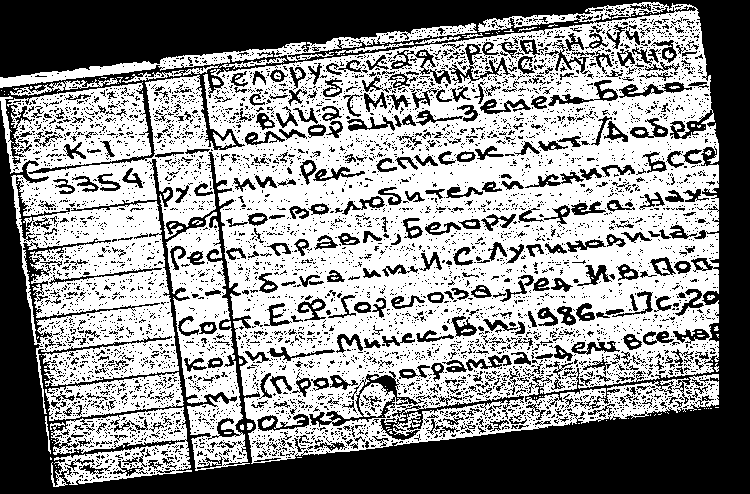 Белорусская респ науч
с-х б-ка им И.С Лупино
вича (Минск)
Мелиорация земель Бело-
С К-1
3354
руссии: Рек. список лит. /Добро-
вол. о-во любителей книги БССР
Респ. правл., Белорус респ. науч
с.-х. б-ка им. И.С. Лупиновича;
Сост. Е.Ф. Горелова; Ред. И.В. Поп-
кович — Минск: Б.и., 1986. — 17с.; 20
см. — (Прод. программа - дело всенар
600 экз